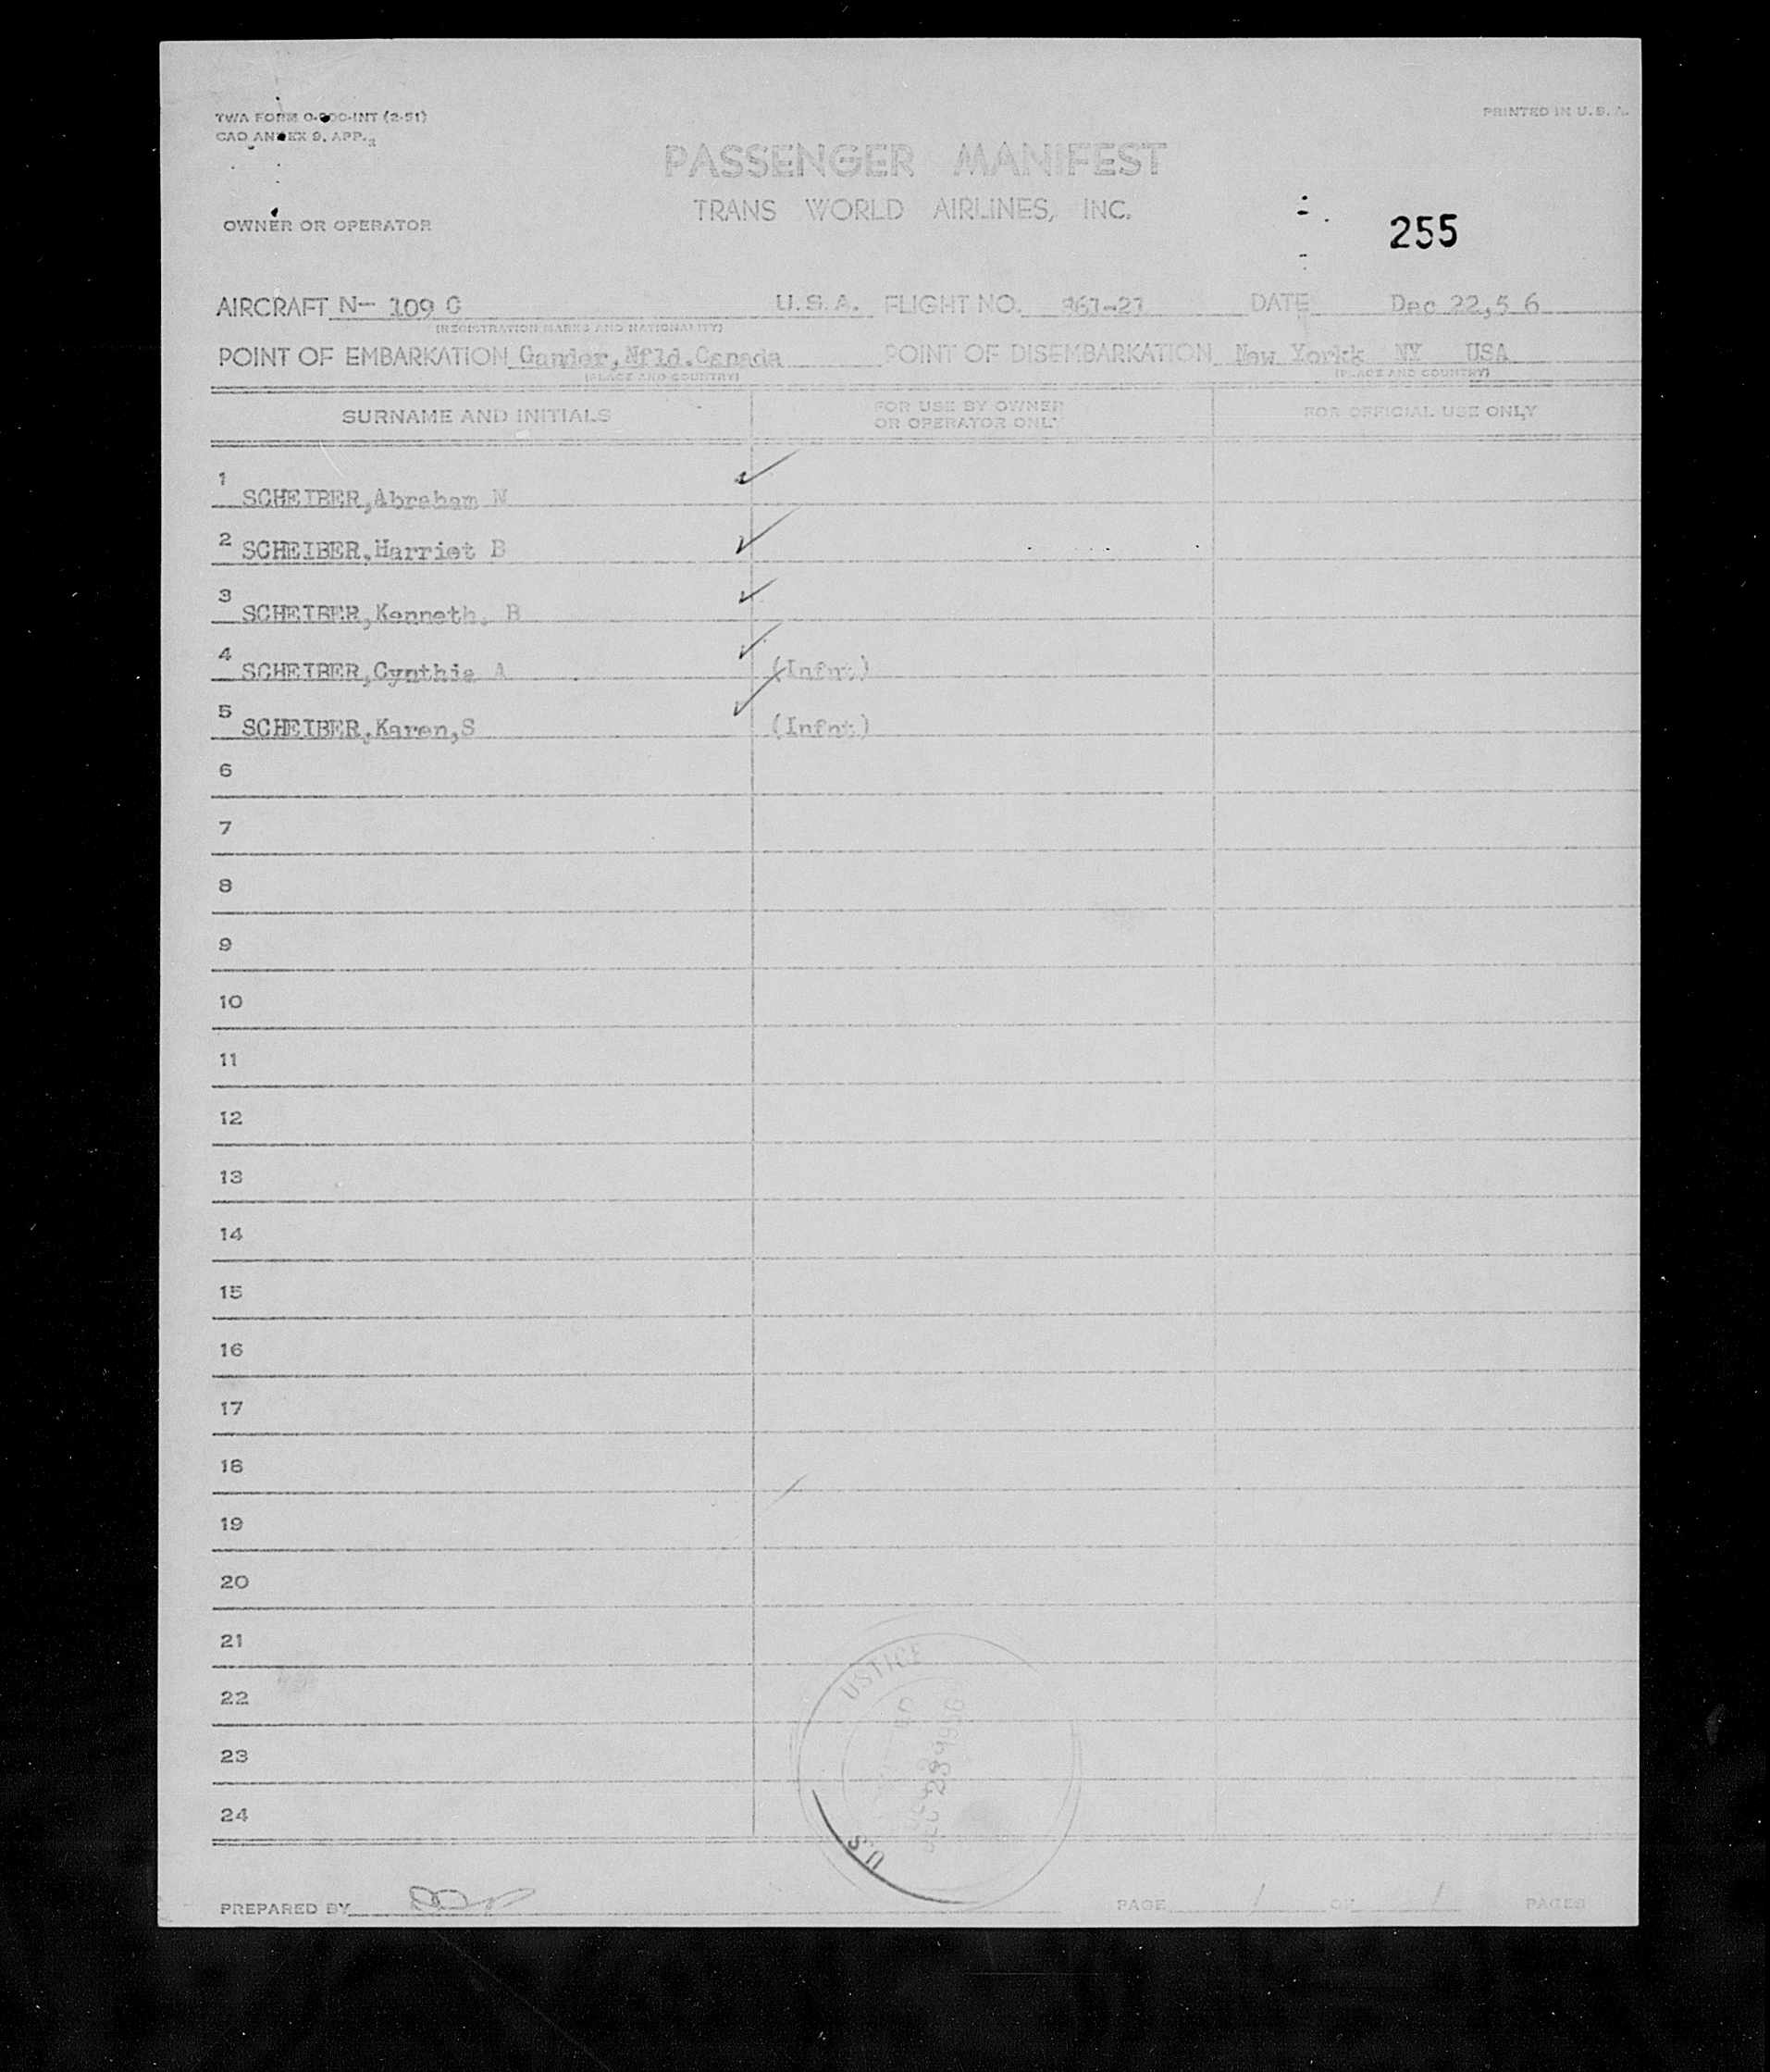 TWA FORM O- -INT (2-51)
PRINTED IN U.S.A.
CAO ANNEX 9, APP. 3
PASSENGER MANIFEST
TRANS WORLD AIRLINES, INC.
255
OWNER OR OPERATOR
AIRCRAFT N- 109 G U.S.A. FLIGHT NO. 861-21 DATE Dec 22,5 6
(REGISTRATION MARKS AND NATIONALITY)
POINT OF EMBARKATION Gander,Nfld.Canada POINT OF DISEMBARKATION New Yorkk NY USA
(PLACE AND COUNTRY) (PLACE AND COUNTRY)
SURNAME AND INITIALS FOR USE BY OWNER OR OPERATOR ONLY FOR OFFICIAL USE ONLY
1 SCHEIBER,Abraham N
2 SCHEIBER,Harriet B
3 SCHEIBER,Kenneth. B
4 SCHEIBER,Cynthia A (Infnt)
5 SCHEIBER,Karen,S (Infnt)
6
7
8
9
10
11
12
13
14
15
16
17
18
19
20
21
22
23
24
USTICE
U.S.
PREPARED BY PAGE 1 OF 1 PAGES